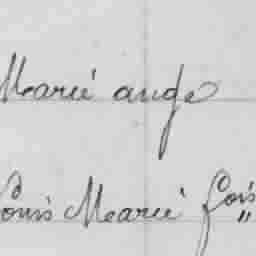 Marie ange
Louis Marie fois
"